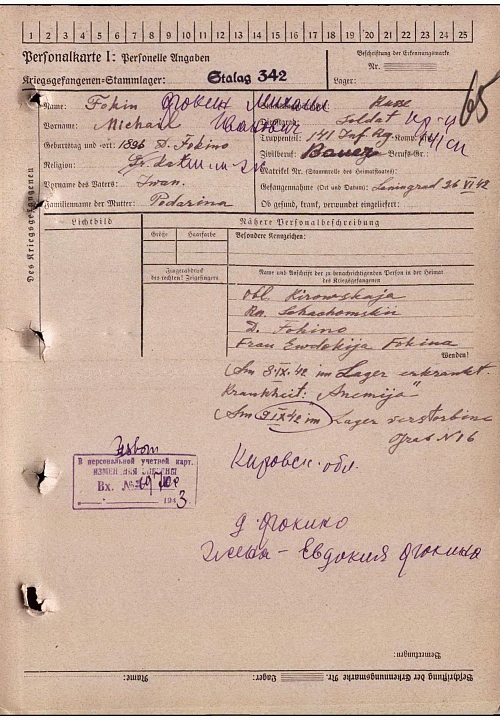 1 2 3 4 5 6 7 8 9 10 11 12 13 14 15 16 17 18 19 20 21 22 23 24 25
Personalkarte I: Personelle Angaben
Kriegsgefangenen-Stammlager: Stalag 342
Beschriftung der Erkennungsmarke
Nr.
Lager:
65
Des Kriegsgefangenen
Name: Fokin Фокин Михаил
Vorname: Michail Иванович
Geburtstag und -ort: 1896 D. Fokino
Religion:
Vorname des Vaters: Iwan.
Familienname der Mutter:
Staatsangehörigkeit: Russe
Dienstgrad: Soldat
Truppenteil: 141 Inf. Rg. Komp. usw.:
Zivilberuf: Bauer Berufs-Gr.:
Matrikel Nr. (Stammrolle des Heimatstaates):
Gefangennahme (Ort und Datum): Leningrad 26 VI 42
Ob gesund, krank, verwundet eingeliefert:
Lichtbild
Nähere Personalbeschreibung
Größe
Haarfarbe
Besondere Kennzeichen:
Fingerabdruck
des rechten! Zeigefingers
Name und Anschrift der zu benachrichtigenden Person in der Heimat
des Kriegsgefangenen
obl Kirowskaja
Rn.
D. Fokino
Frau Ewdokija Fokina
Wenden!
Am 8.IX.42 im Lager erkrankt.
Krankheit: "Anemija"
Am 9 IX 42 im Lager verstorben
Grab N 16
В персональной учетной карт.
ИЗМЕНЕНИЯ ВНЕСЕНЫ
Вх. №
194 3
Кировск. обл.
д Фокино
жена - Евдокия Фокина
Bemerkungen:
Beschriftung der Erkennungsmarke Nr.
Lager:
Name: